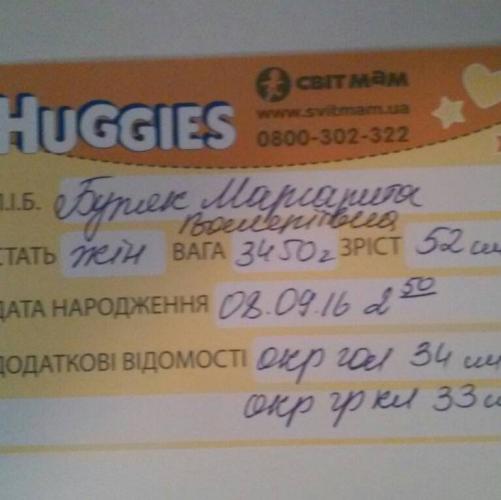 HUGGIES
СВІТ МАМ
www.svitmam.ua
0800-302-322
П.І.Б. Маргарита
Валеріївна
СТАТЬ жін ВАГА 3450г ЗРІСТ 52 см
ДАТА НАРОДЖЕННЯ 08.09.16 2 50
ДОДАТКОВІ ВІДОМОСТІ окр гол 34 см
окр гр кл 33 см